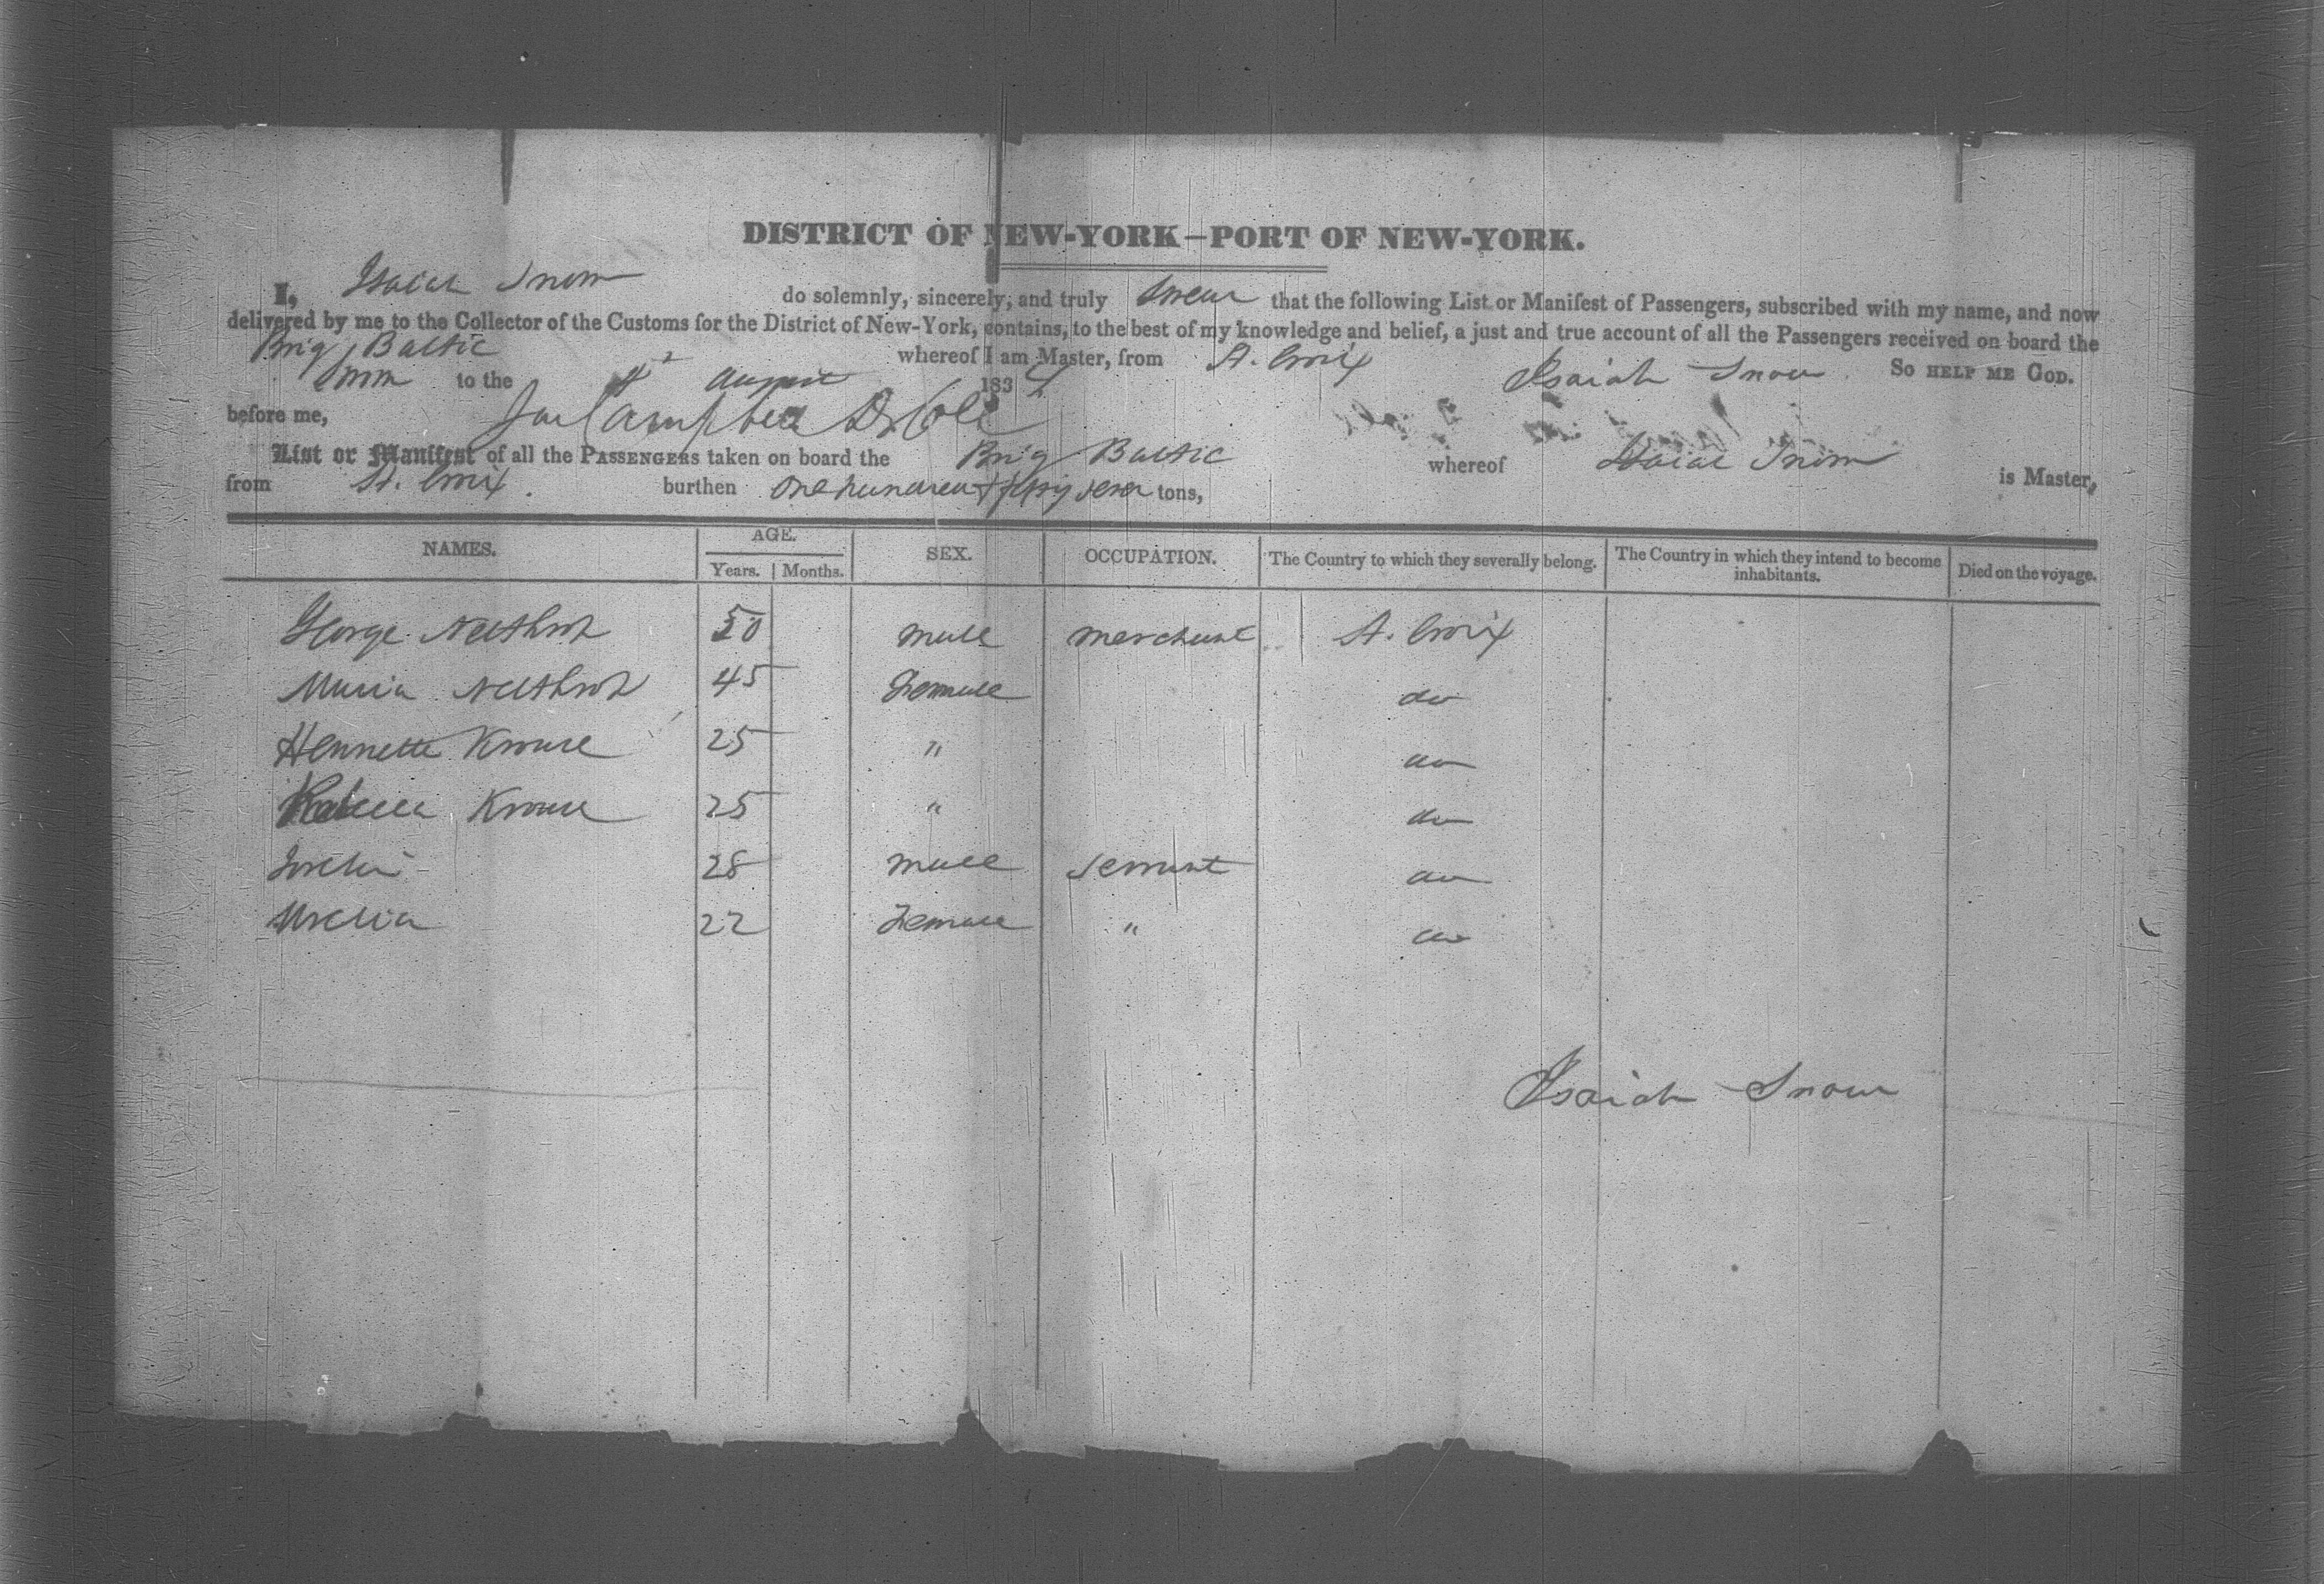 DISTRICT OF NEW-YORK—PORT OF NEW-YORK.
I, Isaiah Snow do solemnly, sincerely, and truly Swear that the following List or Manifest of Passengers, subscribed with my name, and now
delivered by me to the Collector of the Customs for the District of New-York, contains, to the best of my knowledge and belief, a just and true account of all the Passengers received on board the
Brig Baltic whereof I am Master, from St. Croix
to the August 183 Isaiah Snow So HELP ME GOD.
before me, Campbell
List or Manifest of all the PASSENGERS taken on board the Brig Baltic whereof Isaiah Snow is Master,
from St. Croix. burthen One hundred & fifty seven tons,
NAMES. AGE. Years. Months. SEX. OCCUPATION. The Country to which they severally belong. The Country in which they intend to become inhabitants. Died on the voyage.
George 50 male merchant St. Croix
Maria 45 Female do
Krause 25 " do
Rebecca Krause 25 " do
28 male servant do
22 Female " do
Isaiah Snow